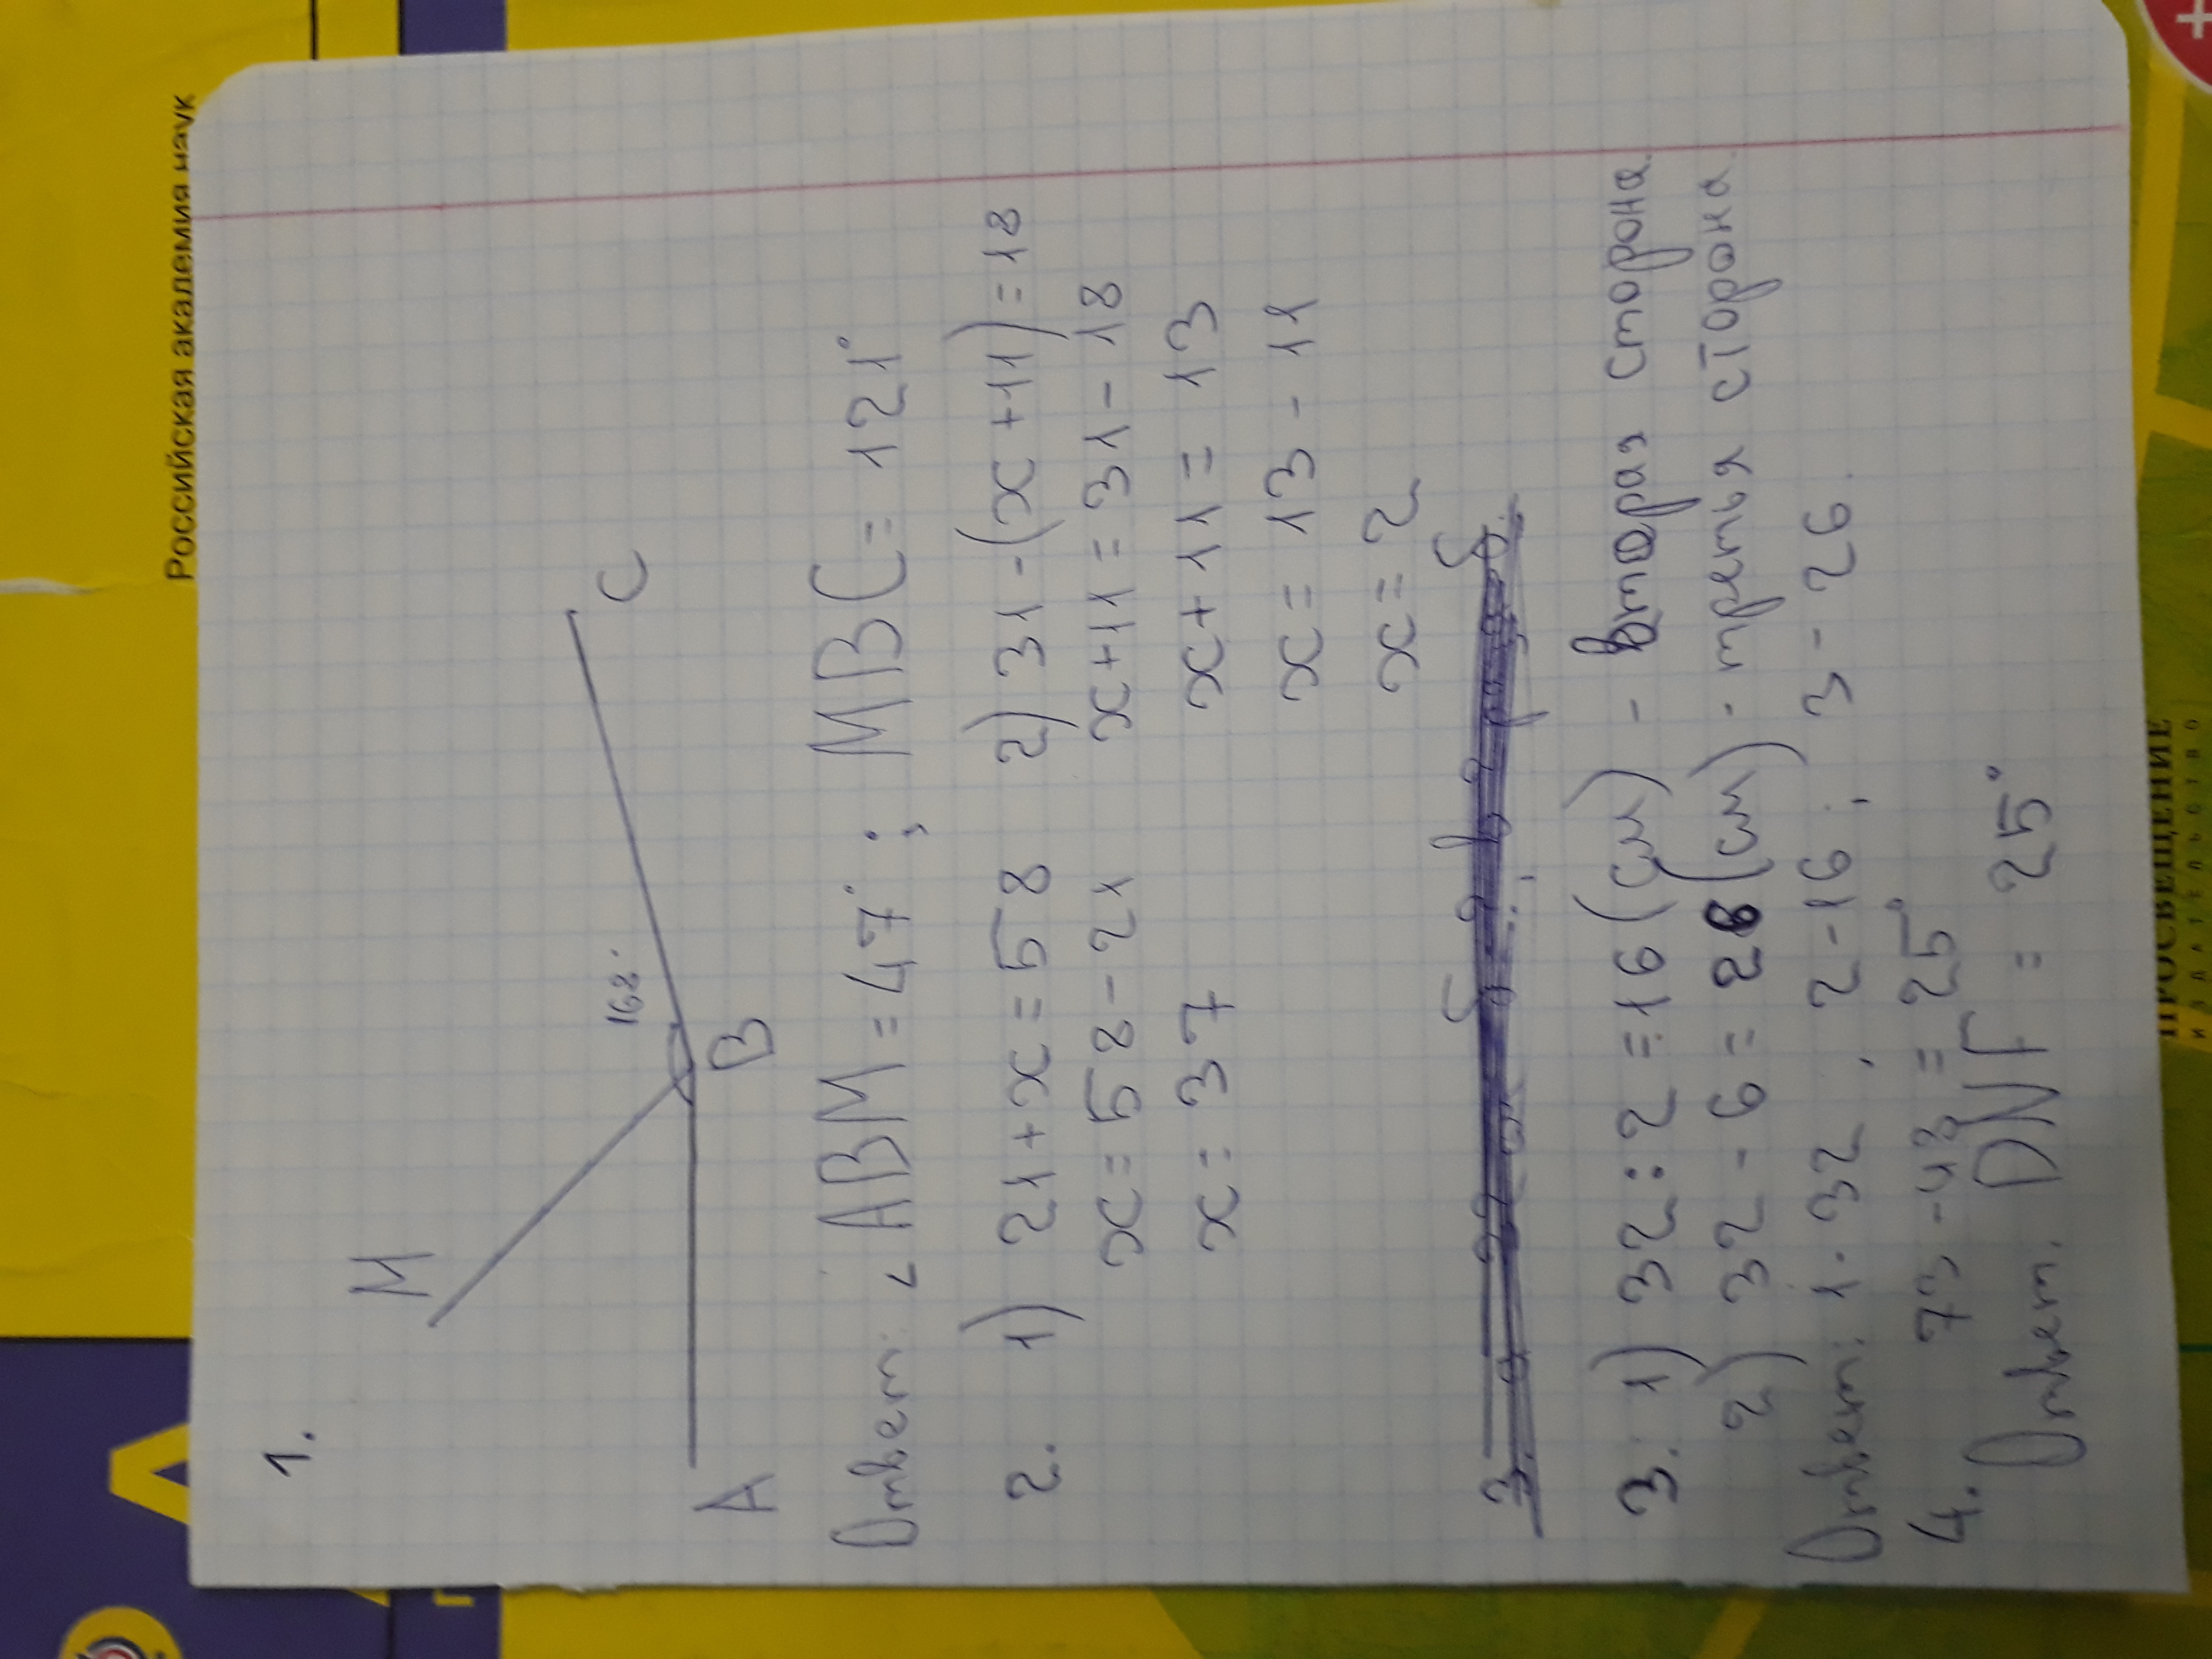 Российская академия наук
1.
М
168°
А
В
С
Ответ: ∠ АВМ = 47° ; МВС = 121°
2. 1) 21 + x = 58 2) 31 - (x + 11) = 18
x = 58 - 21 x + 11 = 31 - 18
x = 37 x + 11 = 13
x = 13 - 11
x = 2
3.
3. 1) 32 : 2 = 16 (см) - вторая сторона.
2) 32 - 6 = 26 (см) - третья сторона.
Ответ: 1 - 32 , 2 - 16 ; 3 - 26.
4. 73 - 48 = 25°
Ответ. DNF = 25°
ПРОСВЕЩЕНИЕ
ИЗДАТЕЛЬСТВО